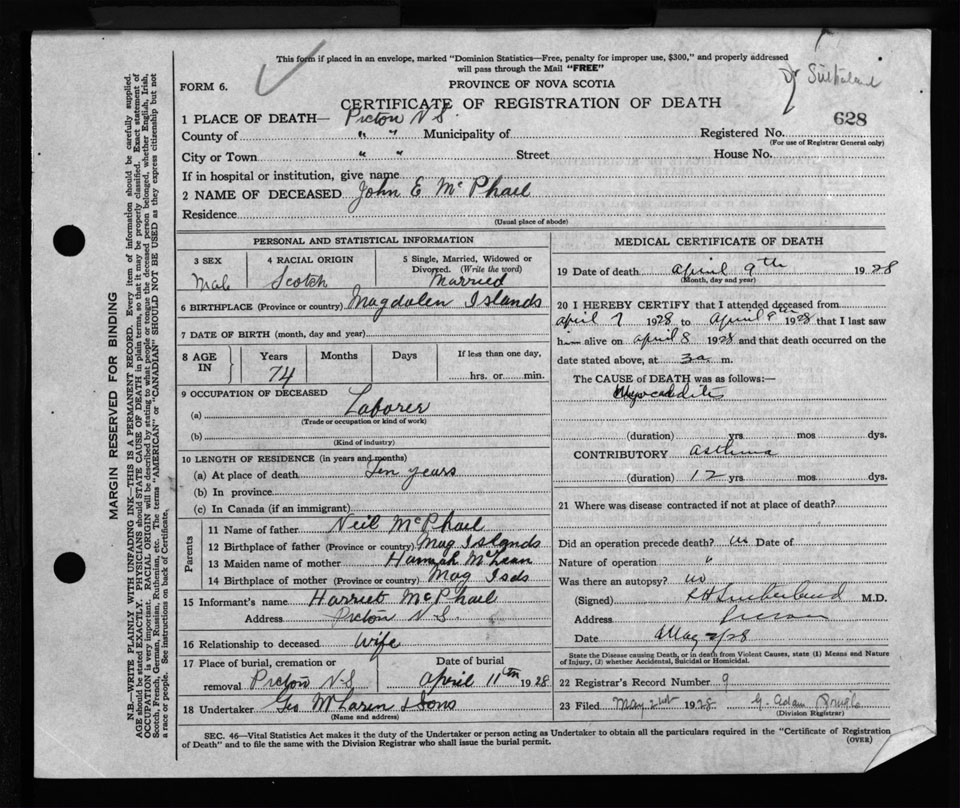 This form if placed in an envelope, marked "Dominion Statistics—Free, penalty for improper use, $300," and properly addressed
will pass through the Mail "FREE"
FORM 6.
PROVINCE OF NOVA SCOTIA
Dr Sutherland
CERTIFICATE OF REGISTRATION OF DEATH
1 PLACE OF DEATH— Picton N.S.
628
County of " " Municipality of Registered No.
(For use of Registrar General only)
City or Town " " Street House No.
If in hospital or institution, give name
2 NAME OF DECEASED John E McPhail
Residence
(Usual place of abode)
PERSONAL AND STATISTICAL INFORMATION
3 SEX 4 RACIAL ORIGIN 5 Single, Married, Widowed or
Divorced. (Write the word)
Male Scotch Married
6 BIRTHPLACE (Province or country) Magdalen Islands
7 DATE OF BIRTH (month, day and year)
8 AGE IN Years Months Days If less than one day,
74 hrs. or min.
9 OCCUPATION OF DECEASED
(a) Laborer
(Trade or occupation or kind of work)
(b)
(Kind of industry)
10 LENGTH OF RESIDENCE (in years and months)
(a) At place of death Ten years
(b) In province
(c) In Canada (if an immigrant)
Parents
11 Name of father Neil McPhail
12 Birthplace of father (Province or country) Mag Islands
13 Maiden name of mother Hannah McLean
14 Birthplace of mother (Province or country) Mag Isds
15 Informant's name Harriet McPhail
Address Picton N.S.
16 Relationship to deceased Wife
17 Place of burial, cremation or Date of burial
removal Picton N-S April 11th 1928
18 Undertaker Geo McLaren & Sons
(Name and address)
MEDICAL CERTIFICATE OF DEATH
19 Date of death April 9th 1928
(Month, day and year)
20 I HEREBY CERTIFY that I attended deceased from
April 7 1928 to April 9th 1928 that I last saw
him alive on April 8 1928 and that death occurred on the
date stated above, at 3 a m.
The CAUSE of DEATH was as follows:—
Myocarditis
(duration) yrs mos dys.
CONTRIBUTORY asthma
(duration) 12 yrs mos dys.
21 Where was disease contracted if not at place of death?
Did an operation precede death? no Date of
Nature of operation "
Was there an autopsy? no
(Signed) Sutherland M.D.
Address
Date May 2/28
State the Disease causing Death, or in death from Violent Causes, state (1) Means and Nature
of Injury, (2) whether Accidental, Suicidal or Homicidal.
22 Registrar's Record Number 9
23 Filed May 2nd 1928 G. Adam
(Division Registrar)
SEC. 46—Vital Statistics Act makes it the duty of the Undertaker or person acting as Undertaker to obtain all the particulars required in the "Certificate of Registration
of Death" and to file the same with the Division Registrar who shall issue the burial permit. (OVER)
MARGIN RESERVED FOR BINDING
N.B.—WRITE PLAINLY WITH UNFADING INK—THIS IS A PERMANENT RECORD. Every item of information should be carefully supplied.
AGE should be stated EXACTLY. PHYSICIANS should STATE CAUSE OF DEATH in plain terms, so that it may be properly classified. Exact statement of
OCCUPATION is very important. RACIAL ORIGIN will be described by stating to what people or tongue the deceased person belonged, whether English, Irish,
Scotch, French, German, Russian, Ruthenian, etc. The terms "AMERICAN" or "CANADIAN" SHOULD NOT BE USED as they express citizenship but not
a race or people. See instructions on back of Certificate.